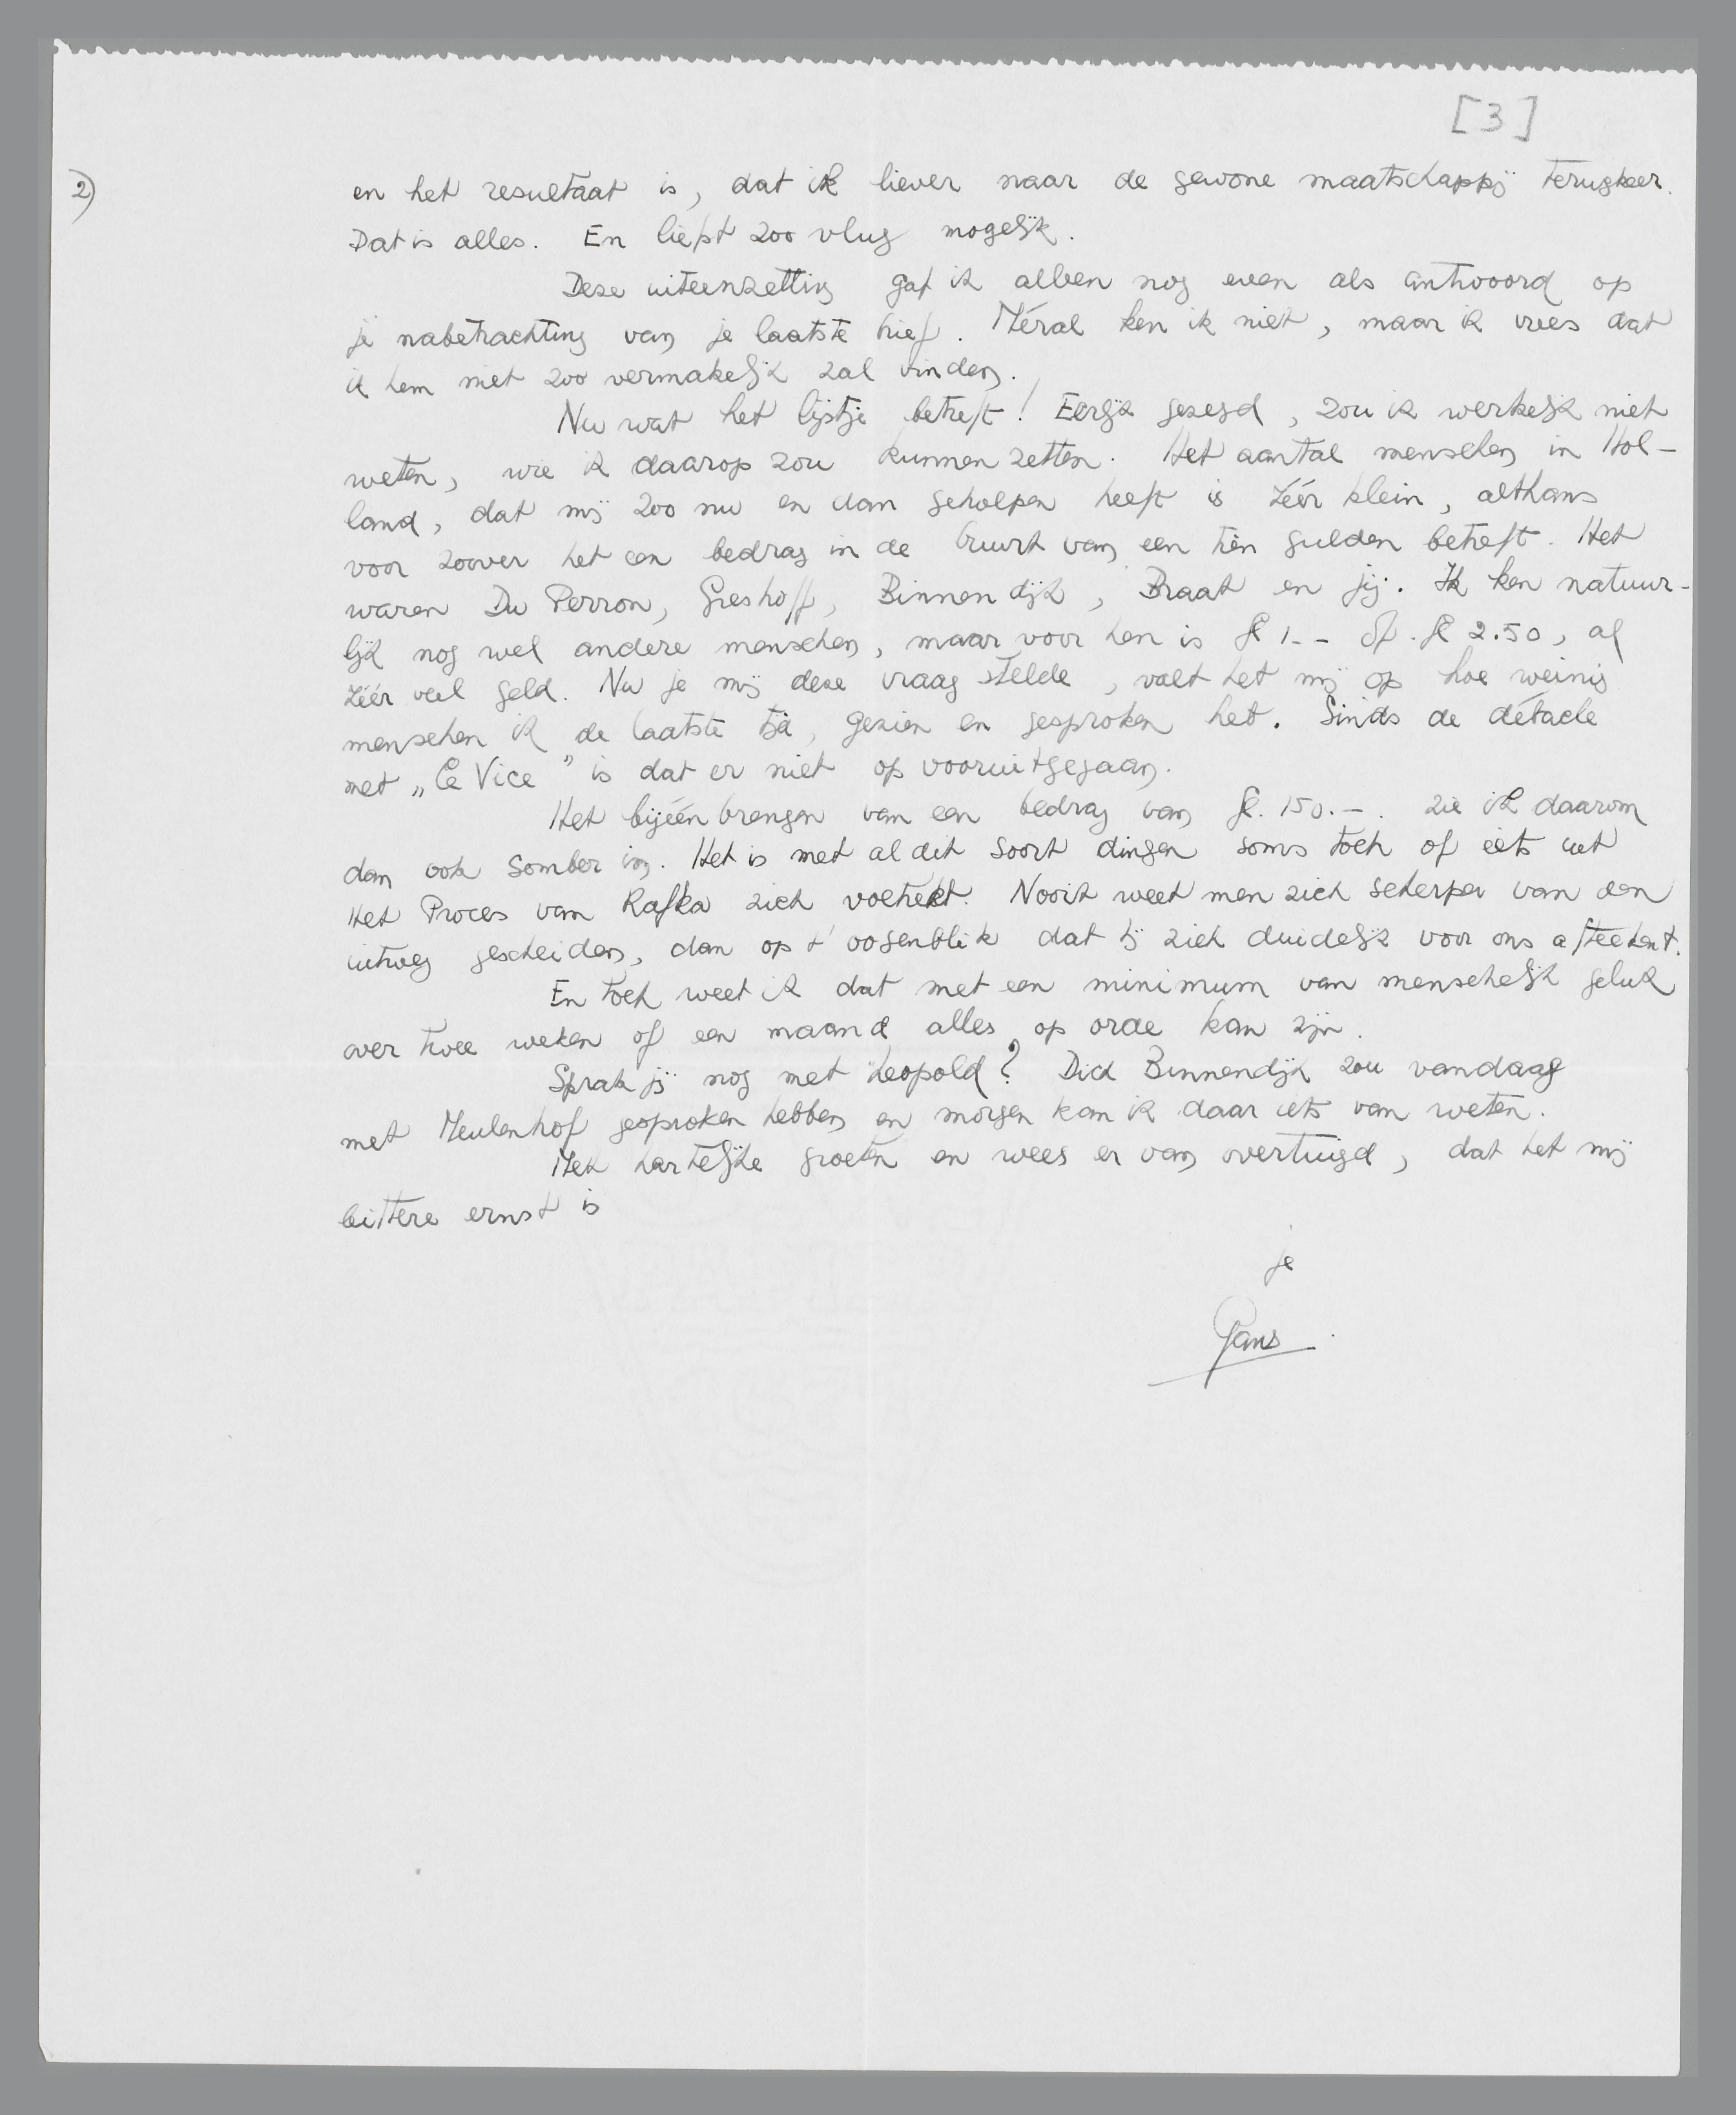 [3]
2)
en het resultaat is, dat ik liever naar de gewone maatschappij terugkeer.
Dat is alles. En liefst zoo vlug mogelijk.
Deze uiteenzetting gaf ik alleen nog even als antwoord op
je nabetrachting van je laatste brief. Méral ken ik niet, maar ik vrees dat
ik hem niet zoo vermakelijk zal vinden.
Nu wat het lijstje betreft! Eerlijk gezegd, zou ik werkelijk niet
weten, wie ik daarop zou kunnen zetten. Het aantal menschen in Hol-
land, dat mij zoo nu en dan geholpen heeft is zéér klein, althans
voor zoover het een bedrag in de buurt van een tien gulden betreft. Het
waren Du Perron, Greshoff, Binnendijk, Braat en jij. Ik ken natuur-
lijk nog wel andere menschen, maar voor hen is fl 1.- of fl 2.50, al
zéér veel geld. Nu je mij deze vraag stelde, valt het mij op hoe weinig
menschen ik de laatste tijd, gezien en gesproken heb. Sinds de débacle
met „Le Vice" is dat er niet op vooruitgegaan.
Het bijéénbrengen van een bedrag van fl. 150.-. zie ik daarom
dan ook somber in. Het is met al dit soort dingen soms toch of iets uit
Het Proces van Kafka zich voltrekt. Nooit weet men zich scherper van een
uitweg gescheiden, dan op 't oogenblik dat hij zich duidelijk voor ons afteekent.
En toch weet ik dat met een minimum van menschelijk geluk
over twee weken of een maand alles op orde kan zijn.
Sprak jij nog met Leopold? Dick Binnendijk zou vandaag
met Meulenhof gesproken hebben en morgen kan ik daar iets van weten.
Met hartelijke groeten en wees er van overtuigd, dat het mij
bittere ernst is
je
Gans.